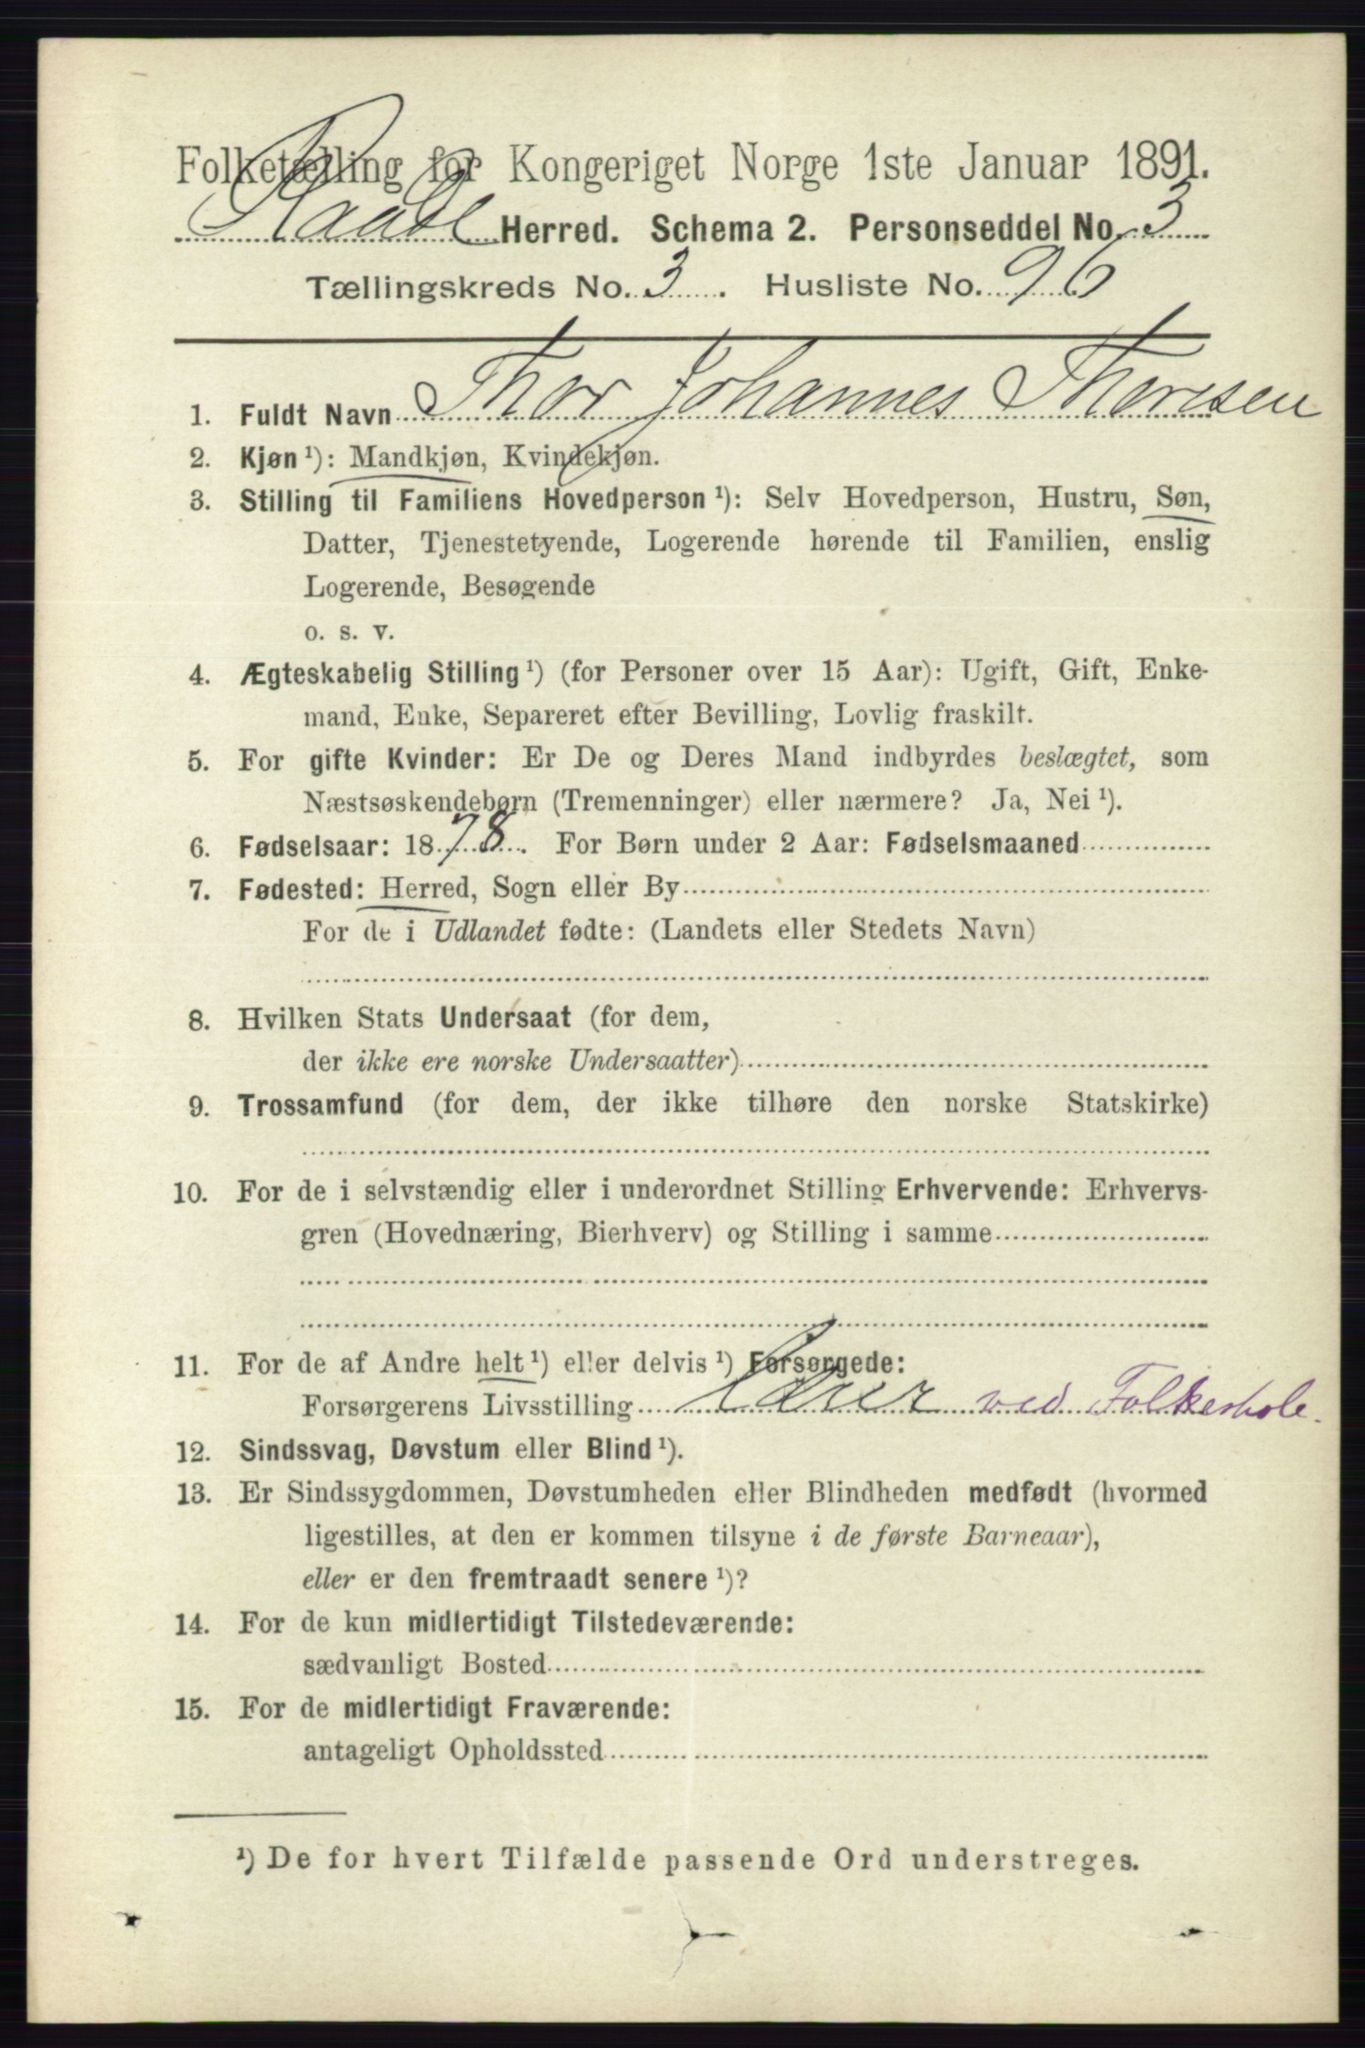 Folketælling for Kongeriget Norge 1ste Januar 1891.
Raade Herred. Schema 2. Personseddel No. 3
Tællingskreds No. 3. Husliste No. 96
1. Fuldt Navn Thor Johannes Thoresen
2. Kjøn ¹): Mandkjøn, Kvindekjøn.
3. Stilling til Familiens Hovedperson ¹): Selv Hovedperson, Hustru, Søn,
Datter, Tjenestetyende, Logerende hørende til Familien, enslig
Logerende, Besøgende
o. s. v.
4. Ægteskabelig Stilling ¹) (for Personer over 15 Aar): Ugift, Gift, Enke-
mand, Enke, Separeret efter Bevilling, Lovlig fraskilt.
5. For gifte Kvinder: Er De og Deres Mand indbyrdes beslægtet, som
Næstsøskendebørn (Tremenninger) eller nærmere? Ja, Nei ¹).
6. Fødselsaar: 1878. For Børn under 2 Aar: Fødselsmaaned
7. Fødested: Herred, Sogn eller By
For de i Udlandet fødte: (Landets eller Stedets Navn)
8. Hvilken Stats Undersaat (for dem,
der ikke ere norske Undersaatter)
9. Trossamfund (for dem, der ikke tilhøre den norske Statskirke)
10. For de i selvstændig eller i underordnet Stilling Erhvervende: Erhvervs-
gren (Hovednæring, Bierhverv) og Stilling i samme
11. For de af Andre helt ¹) eller delvis ¹) Forsørgede:
Forsørgerens Livsstilling Lærer ved Folkeskole.
12. Sindssvag, Døvstum eller Blind ¹).
13. Er Sindssygdommen, Døvstumheden eller Blindheden medfødt (hvormed
ligestilles, at den er kommen tilsyne i de første Barneaar),
eller er den fremtraadt senere ¹)?
14. For de kun midlertidigt Tilstedeværende:
sædvanligt Bosted
15. For de midlertidigt Fraværende:
antageligt Opholdssted
¹) De for hvert Tilfælde passende Ord understreges.